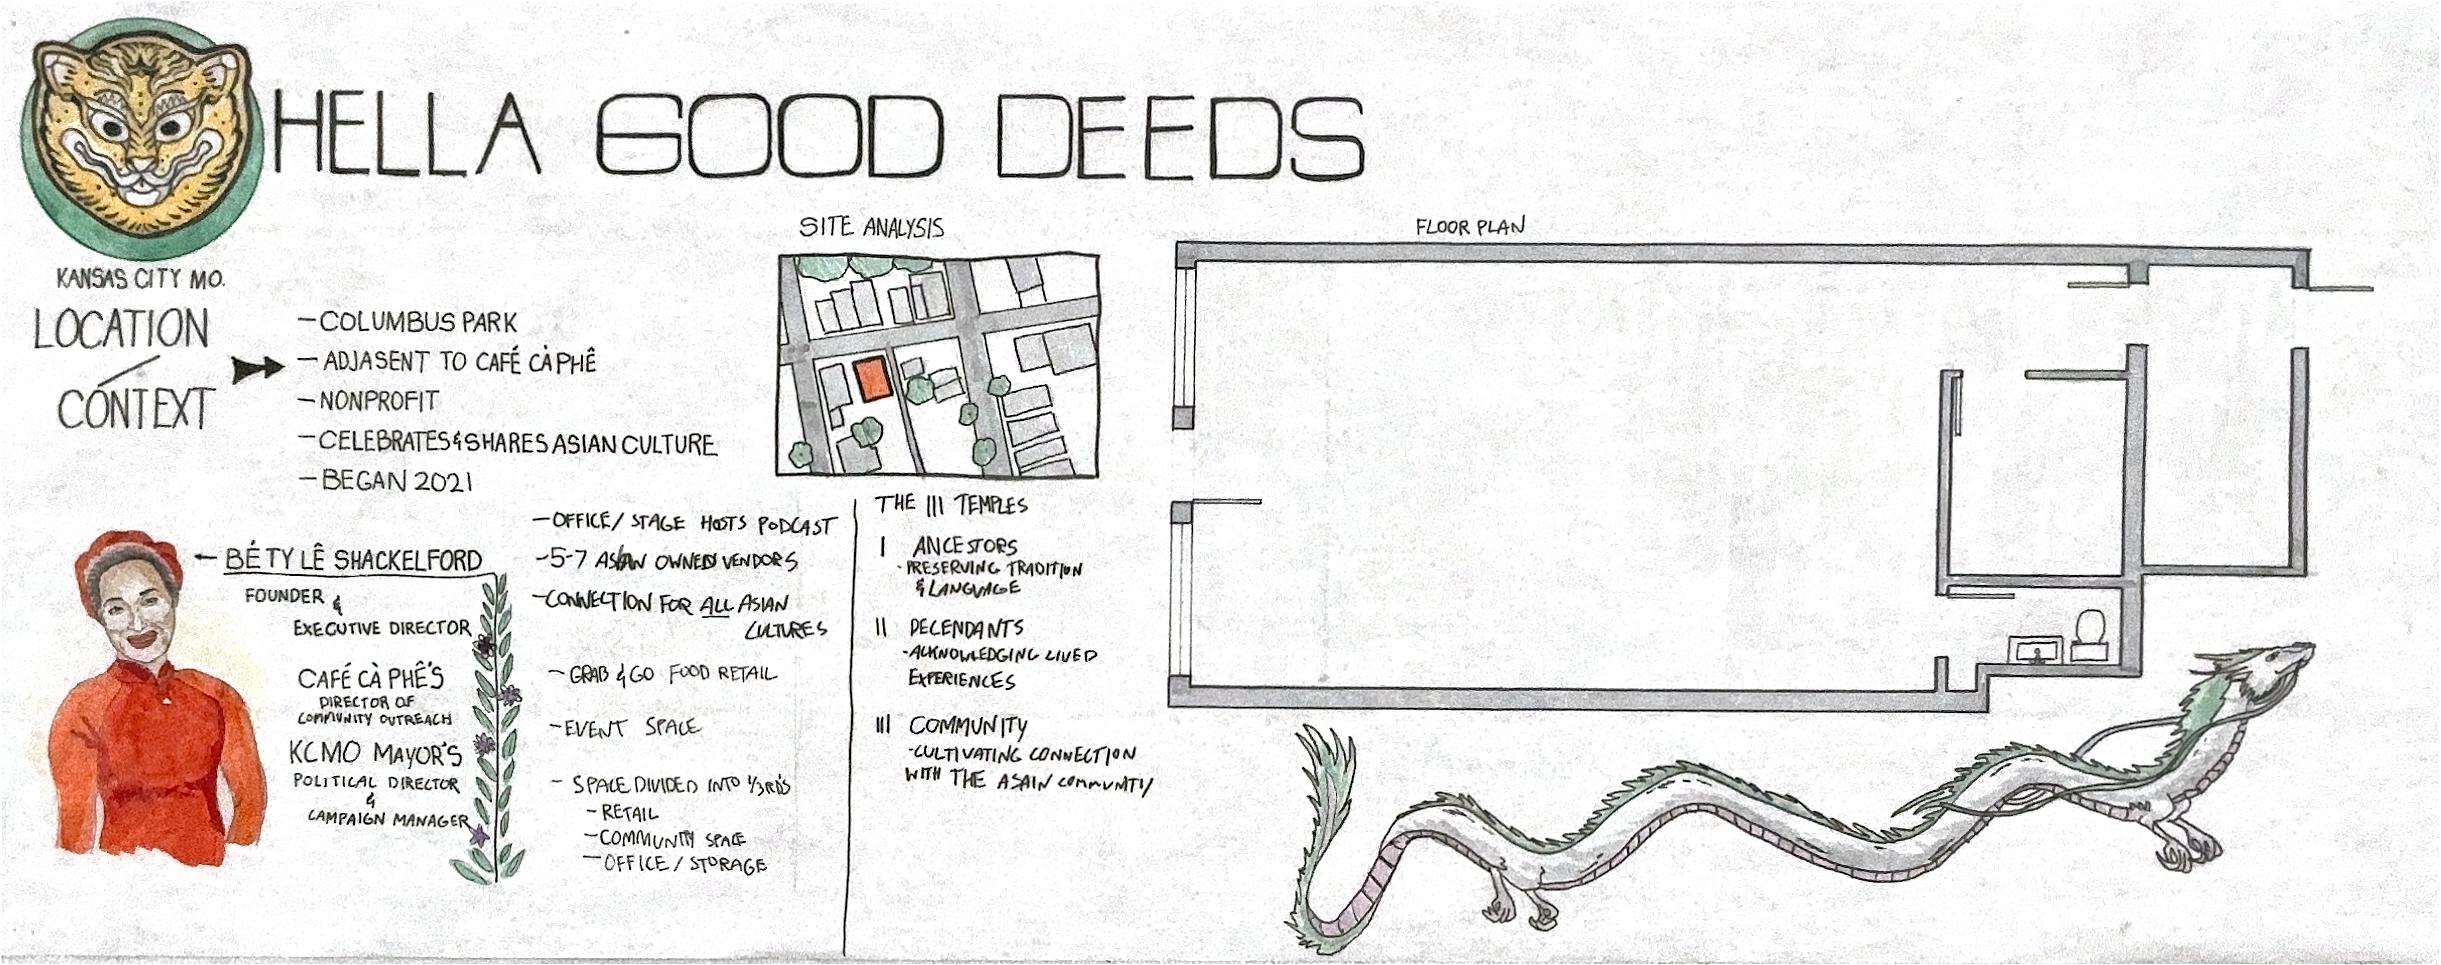 HELLA GOOD DEEDS
KANSAS CITY MO.
LOCATION
/
CONTEXT
-COLUMBUS PARK
-ADJASENT TO CAFÉ CÀ PHÊ
-NONPROFIT
-CELEBRATES & SHARES ASIAN CULTURE
-BEGAN 2021
BÉTY LÊ SHACKELFORD
FOUNDER &
EXECUTIVE DIRECTOR
CAFÉ CÀ PHÊ'S
DIRECTOR OF
COMMUNITY OUTREACH
KCMO MAYOR'S
POLITICAL DIRECTOR
&
CAMPAIGN MANAGER
-OFFICE/ STAGE HOSTS PODCAST
-5-7 ASIAN OWNED VENDORS
-CONNECTION FOR ALL ASIAN
CULTURES
-GRAB & GO FOOD RETAIL
-EVENT SPACE
-SPACE DIVIDED INTO 1/3RD'S
-RETAIL
-COMMUNITY SPACE
-OFFICE/STORAGE
SITE ANALYSIS
THE III TEMPLES
I ANCESTORS
-PRESERVING TRADITION
& LANGUAGE
II DECENDANTS
-ACKNOWLEDGING LIVED
EXPERIENCES
III COMMUNITY
-CULTIVATING CONNECTION
WITH THE ASAIN COMMUNITY
FLOOR PLAN